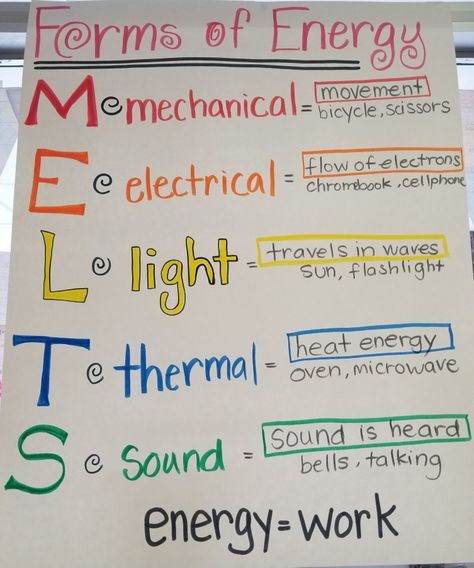 Forms of Energy
M mechanical = movement
bicycle, scissors
E electrical = flow of electrons
chromebook, cellphone
L light = travels in waves
sun, flashlight
T thermal = heat energy
oven, microwave
S sound = sound is heard
bells, talking
energy = work